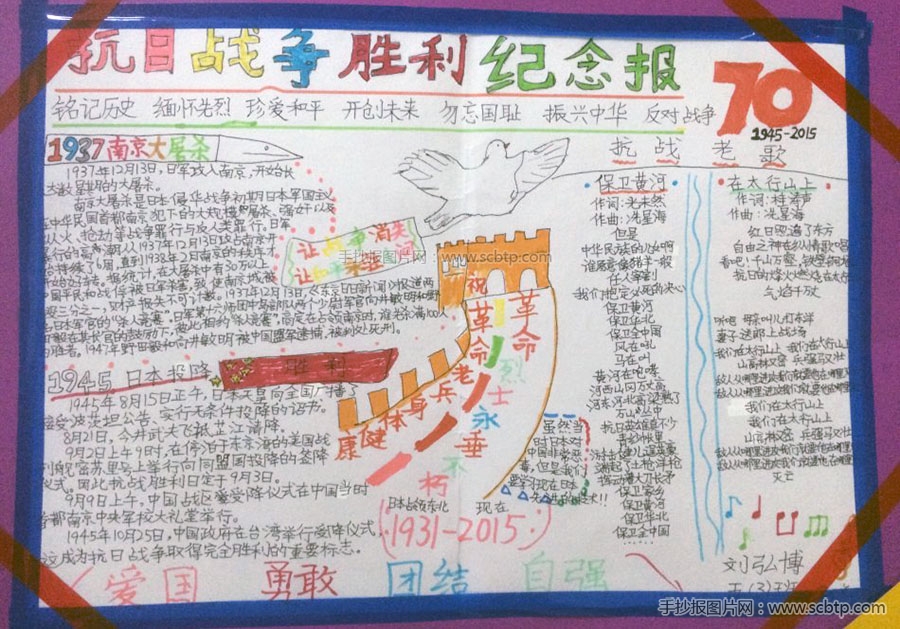 抗日战争胜利纪念报
70
1945-2015
铭记历史 缅怀先烈 珍爱和平 开创未来 勿忘国耻 振兴中华 反对战争
1937南京大屠杀
1937年12月13日,日军攻入南京,开始长
大屠杀。
南京大屠杀是日本侵华战争初期日本军国主义
中华民国首都南京犯下的大规模屠杀、强奸以及
火、抢劫等战争罪行与反人类罪行。日军
行的高潮从1937年12月13日攻占南京开
持续了6周,直到1938年2月南京的秩序
据统计,在大屠杀中有30万以上
国平民和战俘被日军杀害,
三分之一,财产损失不可计数。1937年12月13日,
1947年野田毅和向井敏明被中国盟军逮捕,被判处死刑。
让战争消失
手抄报图片网:www.scbtp.com
1945 日本投降
胜利
1945年8月15日正午,日本天皇向全国广播了
接受波茨坦公告、实行无条件投降的诏书。
8月21日,今井武夫飞抵芷江请降。
9月2日上午9时,在停泊于东京湾的美国战
列舰密苏里号上举行向同盟国投降的签降
仪式。因此抗战胜利日定于9月3日。
9月9日上午,中国战区受降仪式在中国当时
首都南京中央军校大礼堂举行。
1945年10月25日,中国政府在台湾举行受降仪式,
这成为抗日战争取得完全胜利的重要标志。
祝革命老兵身体健康
革命烈士永垂不朽
现在
1931-2015
虽然当
时日本对
中国非常恶
毒,但是我们
要学习现在日本
爱国 勇敢 团结 自强
抗战老歌
保卫黄河
作词:光未然
作曲:冼星海
但是
中华民族的儿女啊
谁愿意像猪羊一般
任人宰割
我们抱定必死的决心
保卫黄河
保卫华北
保卫全中国
风在吼
马在叫
黄河在咆哮
河西山冈万丈高
河东河北高粱熟了
万山丛中
抗日英雄真不少
青纱帐里
游击健儿逞英豪
端起了土枪洋枪
挥动着大刀长矛
保卫家乡
保卫黄河
保卫华北
保卫全中国
在太行山上
作词:桂涛声
作曲:冼星海
红日照遍了东方
自由之神在纵情歌唱
看吧!千山万壑,铁壁铜墙
抗日的烽火燃烧在太行
气焰千万丈
听吧 母亲叫儿打东洋
妻子送郎上战场
我们在太行山上 我们在太行山
山高林又密 兵强马又壮
我们在太行山上
我们在太行山上
山高林又密 兵强马又壮
灭亡
刘弘博
五(3)班
手抄报图片网:www.scbtp.com